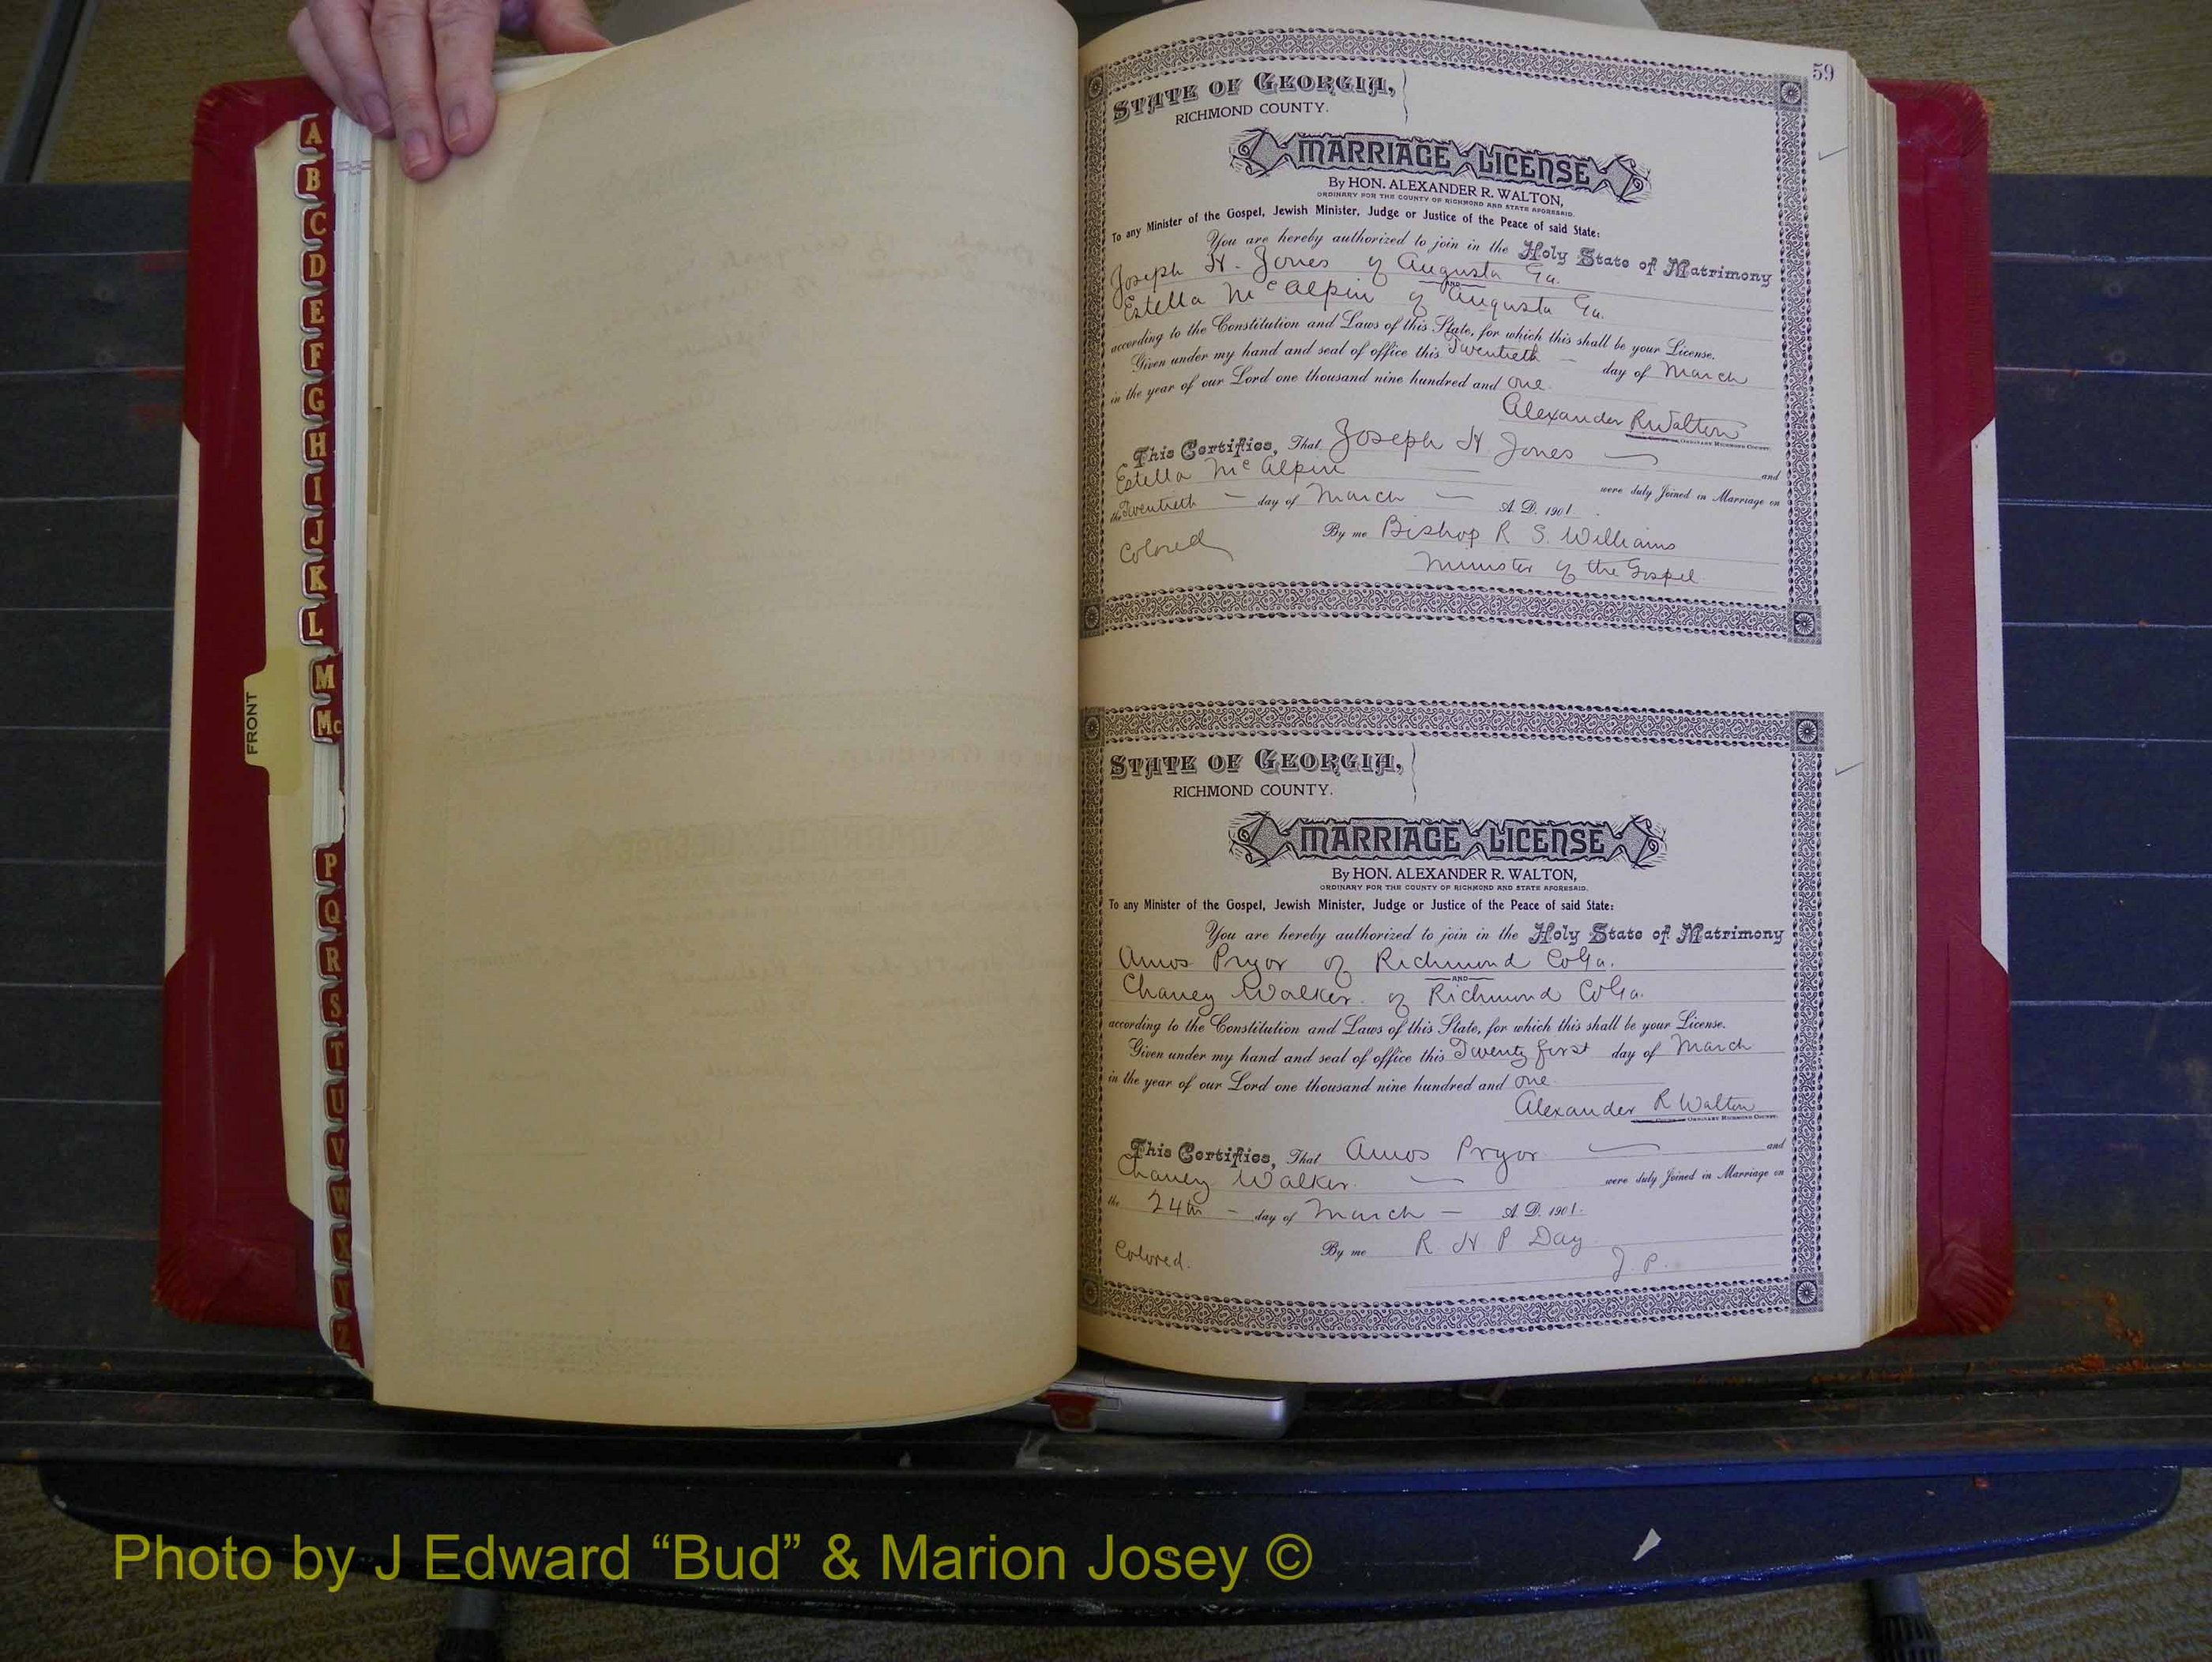 A
B
C
D
E
F
G
H
I
J
K
L
M
Mc
P
Q
R
S
T
U
V
W
X
Y
Z
FRONT
59
STATE OF GEORGIA,
RICHMOND COUNTY.
MARRIAGE LICENSE
By HON. ALEXANDER R. WALTON,
ORDINARY FOR THE COUNTY OF RICHMOND AND STATE AFORESAID.
To any Minister of the Gospel, Jewish Minister, Judge or Justice of the Peace of said State:
You are hereby authorized to join in the Holy State of Matrimony
Joseph H. Jones of Augusta Ga.
AND
Estella McAlpin of Augusta Ga.
according to the Constitution and Laws of this State, for which this shall be your License.
Given under my hand and seal of office this Twentieth day of March
in the year of our Lord one thousand nine hundred and one.
Alexander R Walton
ORDINARY RICHMOND COUNTY.
This Certifies, That Joseph H Jones and
Estella McAlpin were duly Joined in Marriage on
the Twentieth day of March A. D. 1901.
By me Bishop R S. Williams
Colored Minister of the Gospel
STATE OF GEORGIA,
RICHMOND COUNTY.
MARRIAGE LICENSE
By HON. ALEXANDER R. WALTON,
ORDINARY FOR THE COUNTY OF RICHMOND AND STATE AFORESAID.
To any Minister of the Gospel, Jewish Minister, Judge or Justice of the Peace of said State:
You are hereby authorized to join in the Holy State of Matrimony
Amos Pryor of Richmond Co Ga.
AND
Chaney Walker. of Richmond Co Ga.
according to the Constitution and Laws of this State, for which this shall be your License.
Given under my hand and seal of office this Twenty first day of March
in the year of our Lord one thousand nine hundred and one.
Alexander R Walton
ORDINARY RICHMOND COUNTY.
This Certifies, That Amos Pryor and
Chaney Walker. were duly Joined in Marriage on
the 24th day of March A. D. 1901.
Colored. By me R H P Day
J. P.
Photo by J Edward “Bud” & Marion Josey ©